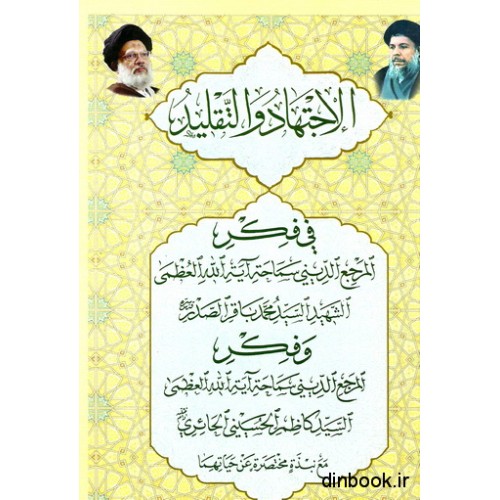 الاجتهاد والتقليد
في فكر
المرجع الديني سماحة آية الله العظمى
الشهيد السيد محمد باقر الصدر
وفكر
المرجع الديني سماحة آية الله العظمى
السيد كاظم الحسيني الحائري
مع نبذة مختصرة عن حياتهما
dinbook.ir